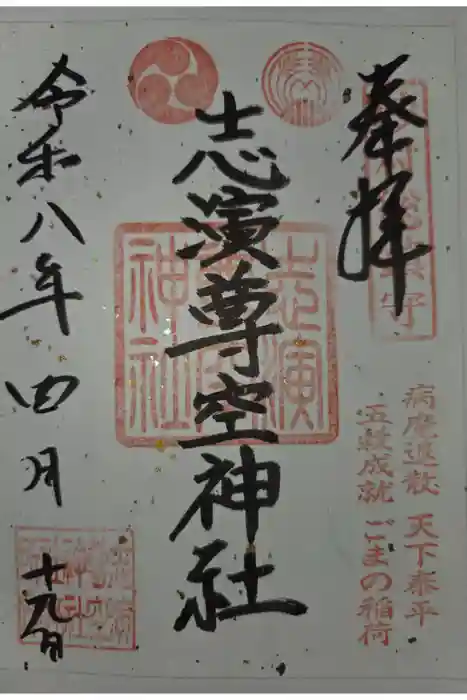 奉拝
病魔退散 天下泰平
五穀成就 ごまの稲荷
志演尊空神社
志演
神社
令和八年四月
十九日